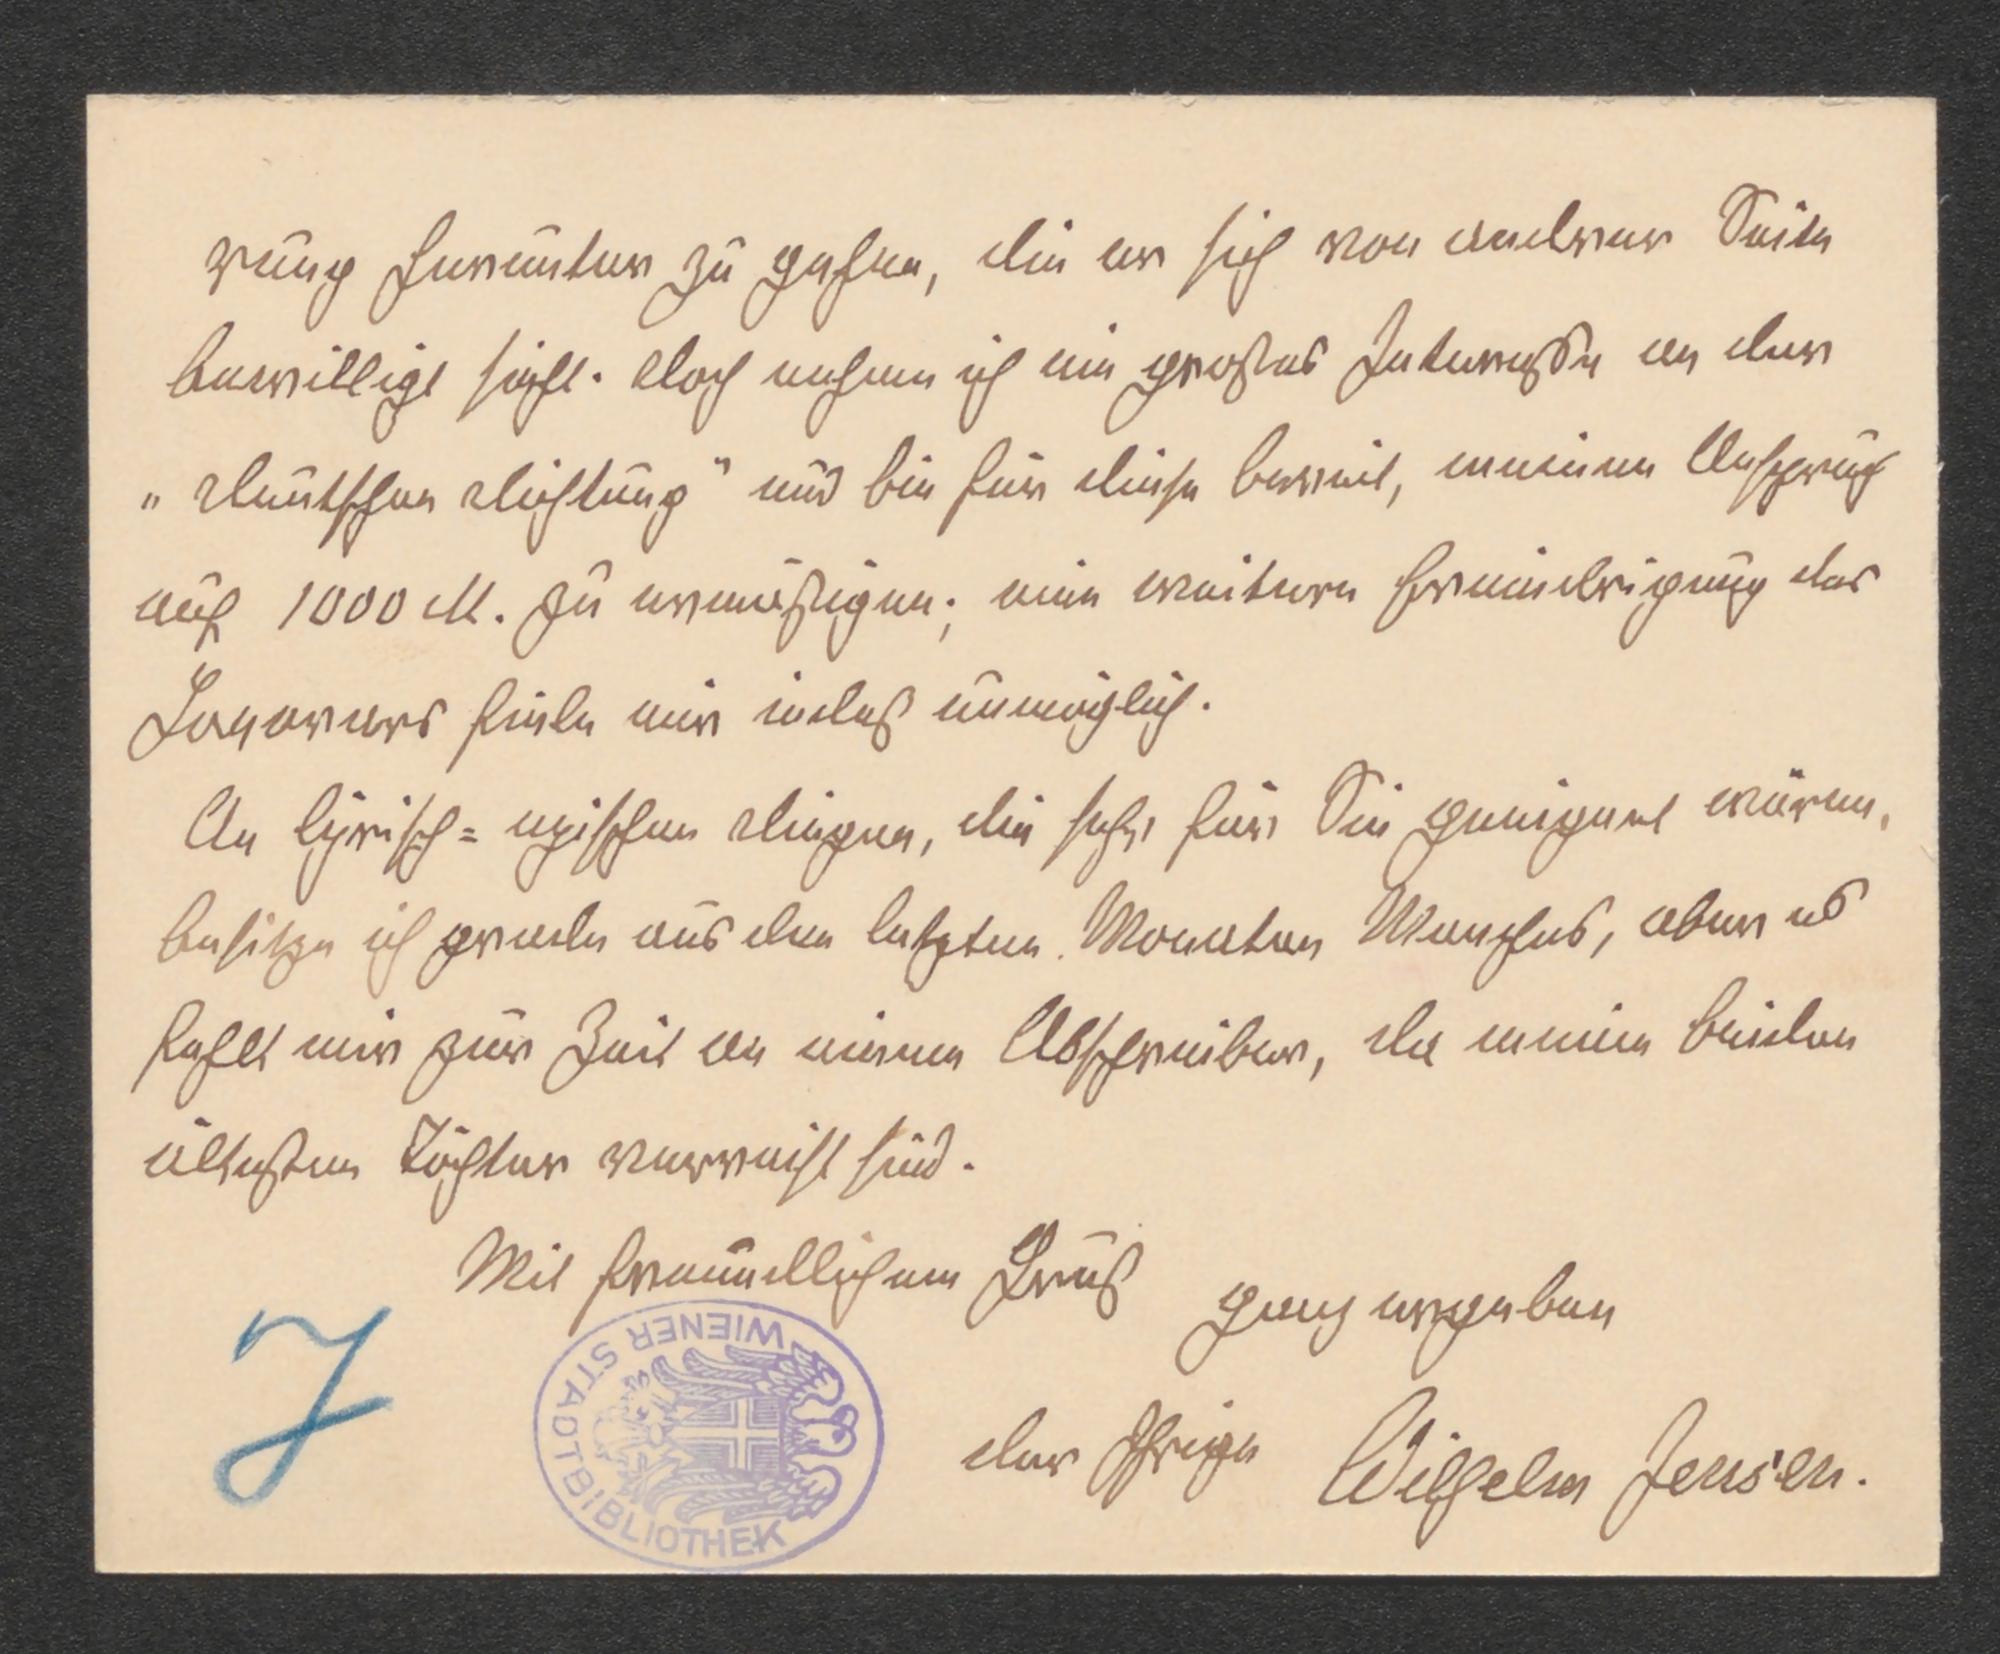 rung herunter zu gehen, die er sich von andrer Seite
bewilligt sieht. Doch nehme ich ein großes Interesse an der
„Deutschen Dichtung" und bin für diese bereit, meinen Anspruch
auf 1000 M. zu ermäßigen; eine weitere Erniedrigung des
Honorars fiele mir indeß unmöglich.
An lyrisch=epischen Dingen, die sehr für Sie geeignet wären,
besitze ich grade aus den letzten Monaten Manches, aber es
fehlt mir zur Zeit an einem Abschreiber, da meine beiden
ältesten Töchter verreist sind.
Mit freundlichem Gruß
ganz ergeben
der Ihrige Wilhelm Jensen.
J
WIENER STADTBIBLIOTHEK